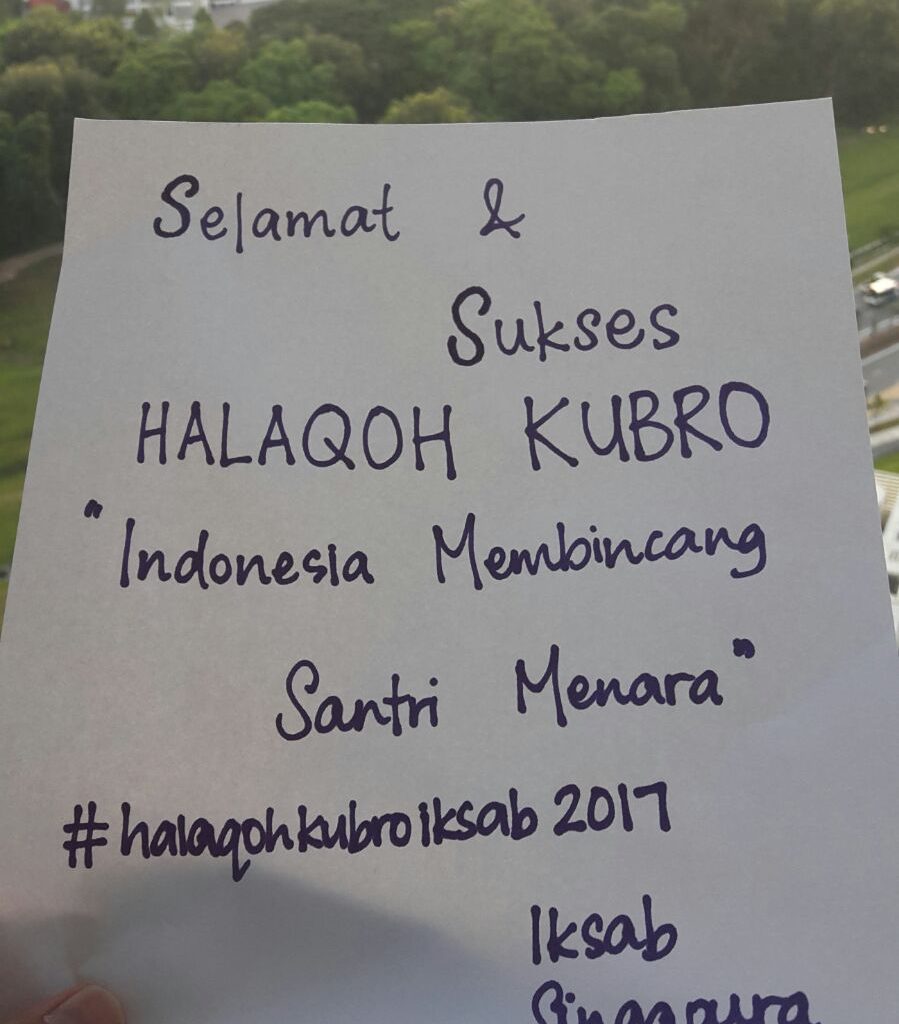 Selamat &
Sukses
HALAQOH KUBRO
"Indonesia Membincang
Santri Menara"
#halaqohkubroiksab2017
Iksab
Singapura